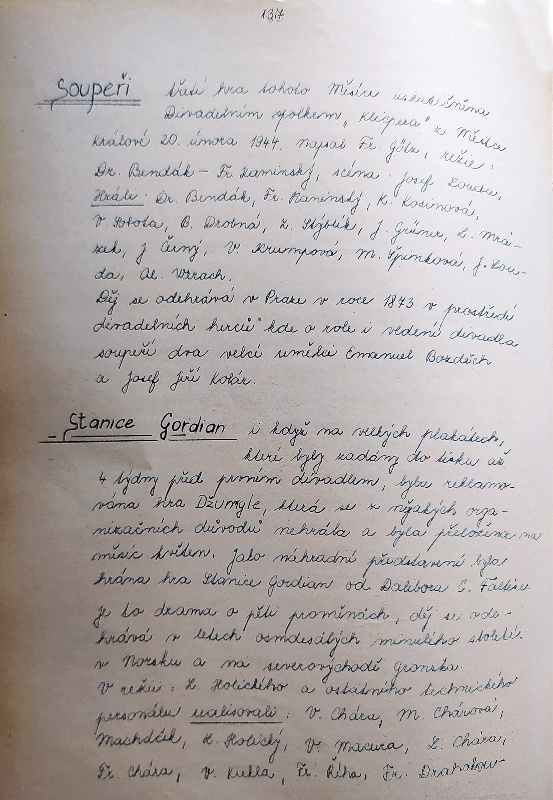 137
Soupeři třetí hra tohoto Měsíce uskutečněna
Divadelním spolkem „Klicpera" z Městce
Králové 20. února 1944. napsal Fr. Götz, režie:
Dr. Bendák – Fr. Kaminský, scéna: Josef Louda,
Hráli: Dr. Bendák, Fr. Kaninský, K. Kosinová,
V. Sobota, B. Drobná, Z. Stýblík, J. Grüner, L. Mrá-
zek, J. Černý, V. Krumpová, M. Špinková, J. Lou-
da, Al. Vzrach.
Děj se odehrává v Praze v roce 1873 v prostředí
divadelních herců kde o role i vedení divadla
soupeří dva velcí umělci Emanuel Bozděch
a Josef Jiří Kolár.
Stanice Gordian i když na velkých plakátech,
které byly zadány do tisku až
4 týdny před prvním divadlem, byla reklamo-
vána hra Džungle, která se z nějakých orga-
nizačních důvodů nehrála a byla přeložena na
měsíc květen. Jako náhradní představení byla
hrána hra Stanice Gordian od Dalibora C. Faltise
je to drama o pěti proměnách, děj se ode-
hrává v letech osmdesátých minulého století.
v Norsku a na severovýchodě Gronska.
V režii: L. Holického a ostatního technického
personálu realisovali: V. Chára, M. Chárová,
Machdčík, K. Holický, V. Macura, L. Chára,
Fr. Chára, V. Kukla, Fr. Říha, Fr. Drahošov-